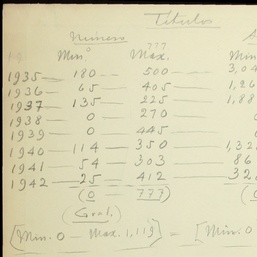 Títulos
Número
Min.° Max. Min
1935 — 180 — 500 — 3,04
1936 — 65 — 405 — 1,26
1937 — 135 — 225 — 1,88
1938 — 0 — 270
1939 — 0 — 445
1940 — 114 — 350 — 1,32
1941 — 54 — 303 86
1942 — 25 — 412 — 32
(0 — 777) (0
(Goal.)
[Min. 0 — Max. 1,119] = [Min. 0